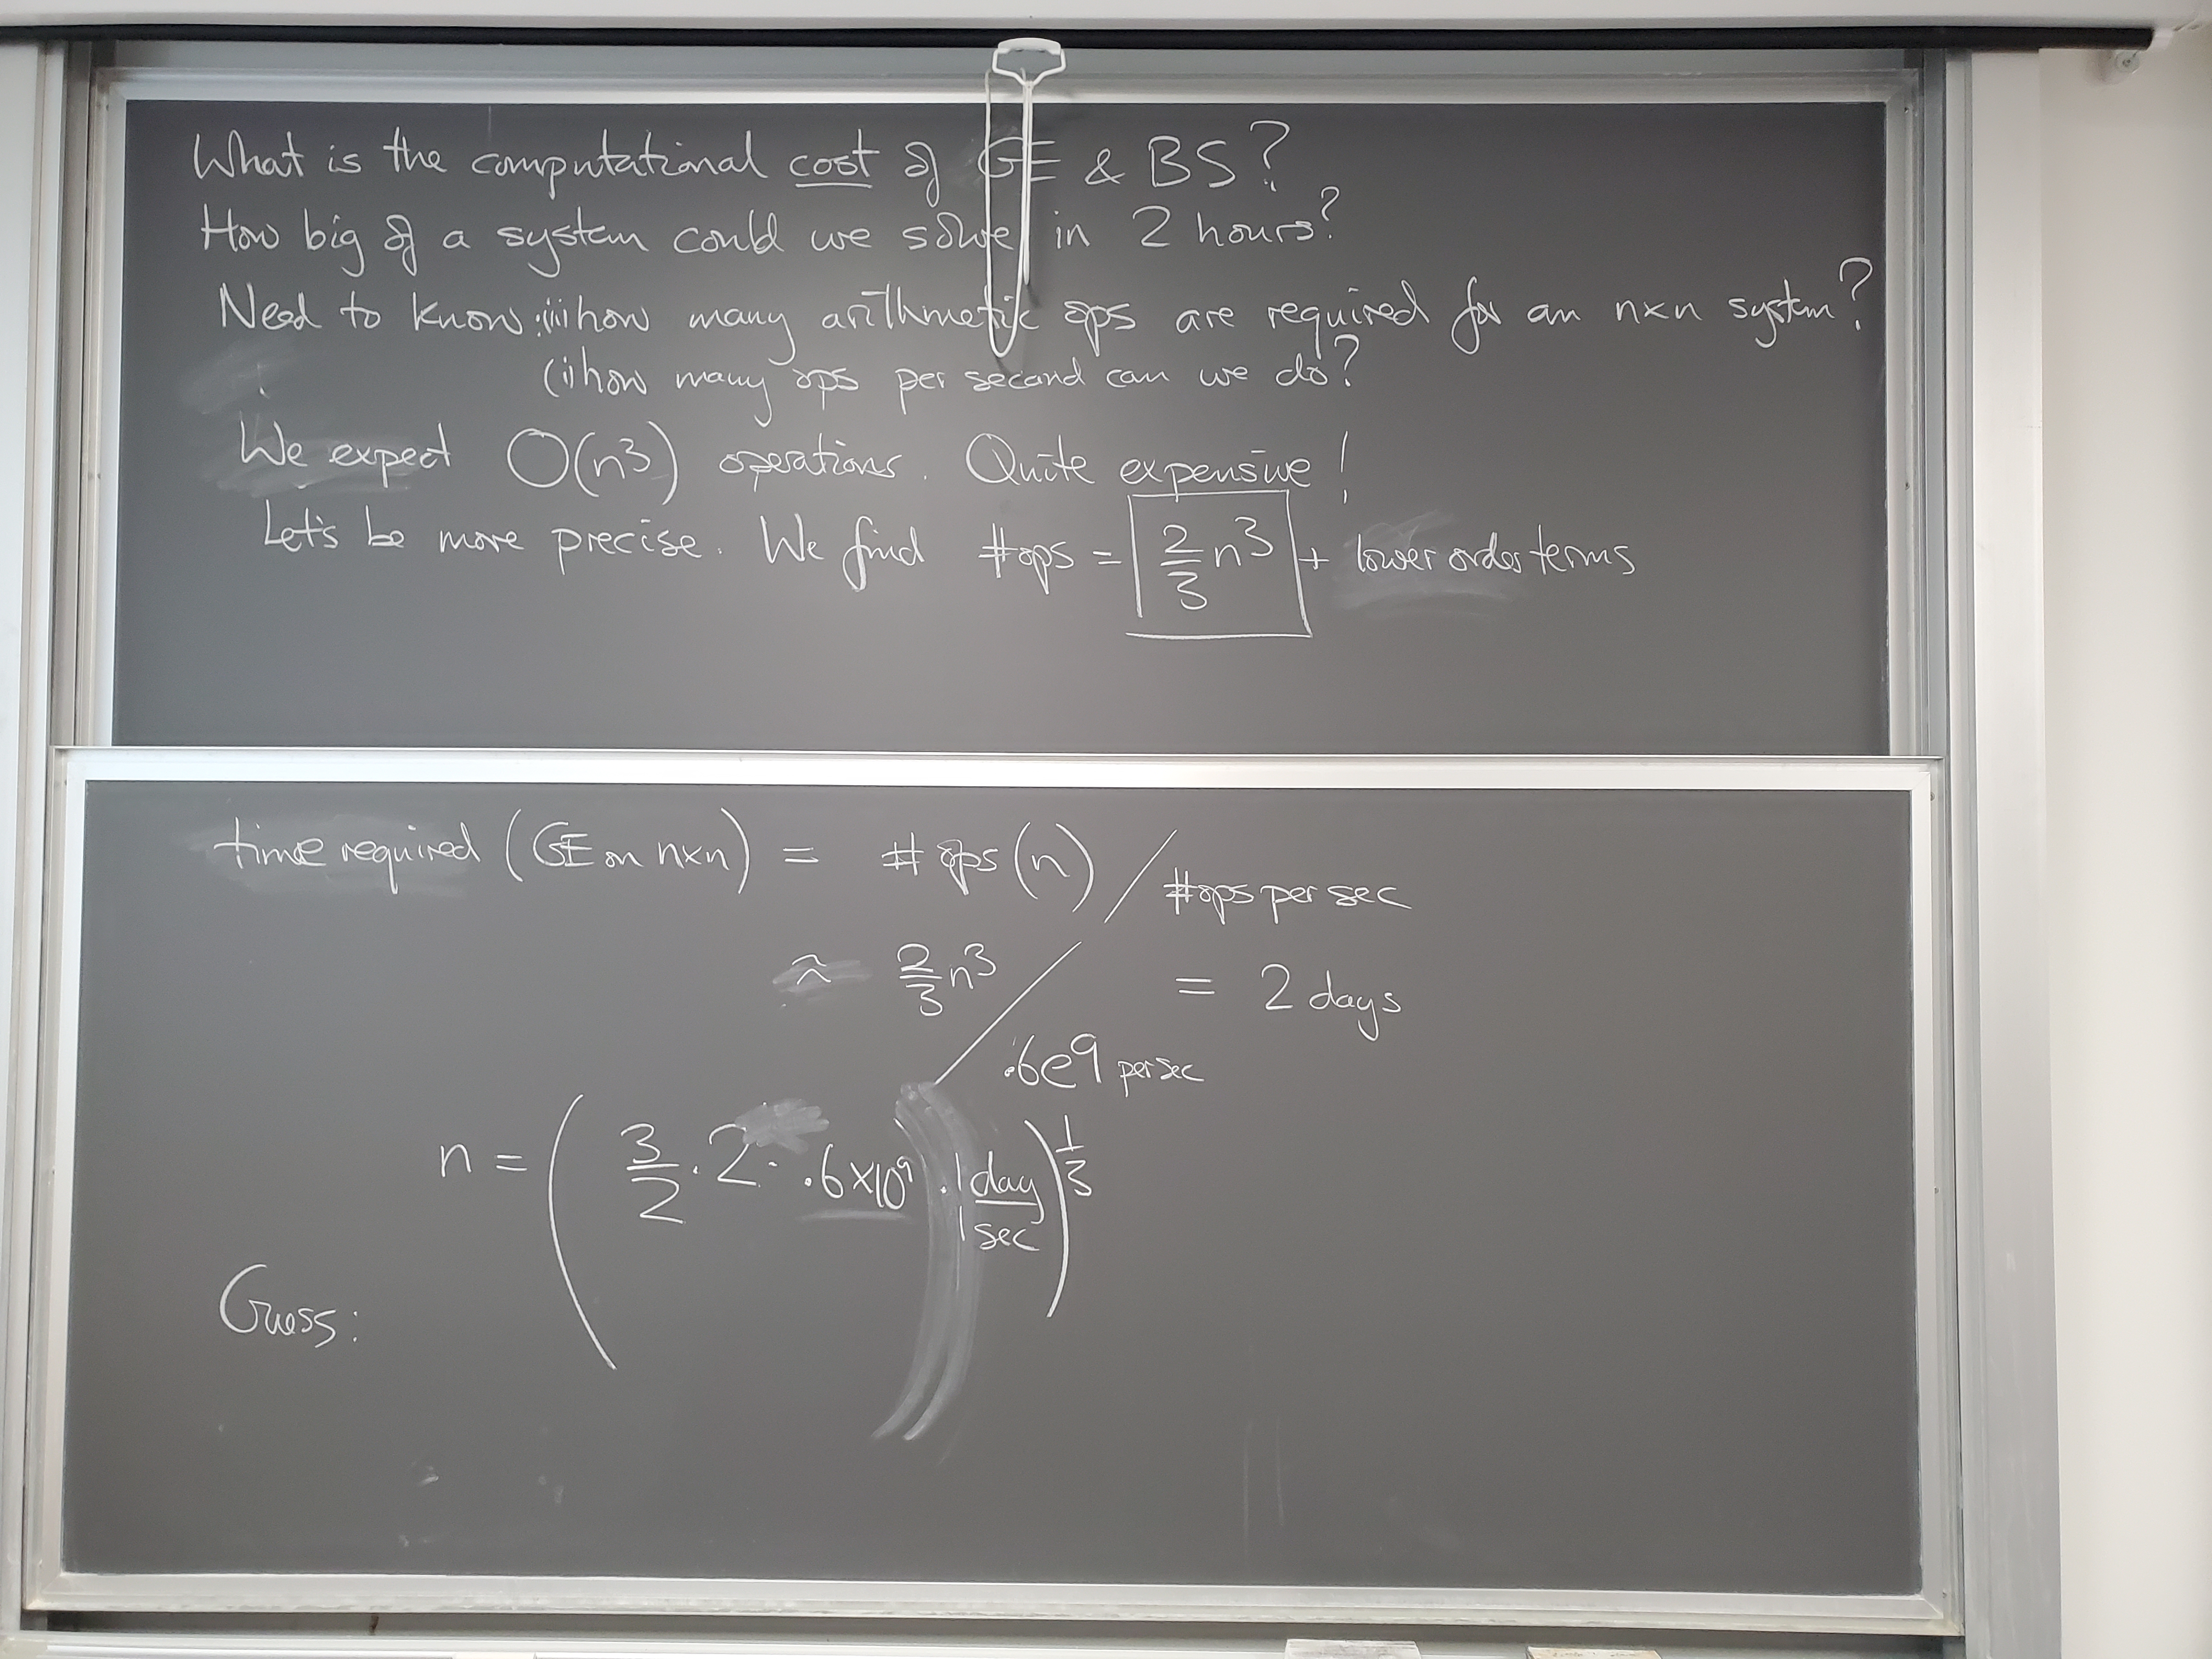 What is the computational cost of GE & BS?
How big of a system could we solve in 2 hours?
Need to know: (i) how many arithmetic ops are required for an n×n system?
(ii) how many ops per second can we do?
We expect O(n³) operations. Quite expensive!
Let's be more precise. We find #ops = 2/3 n³ + lower order terms
time required (GE on n×n) = # ops (n) / #ops per sec
≈ 2/3 n³ / .6e9 per sec = 2 days
n = ( 3/2 · 2 · .6×10⁹ · 1 day / 1 sec )^1/3
Guess: